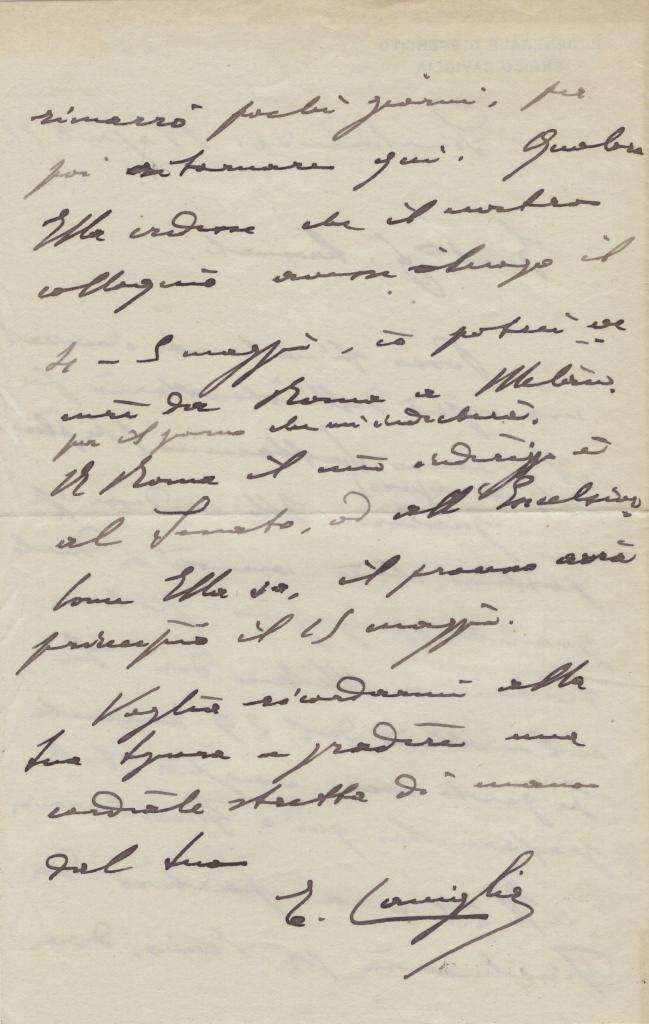 rimarrò pochi giorni, per
poi ritornare qui. Qualora
Ella credesse che il nostro
colloquio avesse luogo il
4 - 5 maggio, io potrei ve
nire da Roma a Milano.
per il giorno che mi indicherà.
A Roma il mio indirizzo è
al Senato, od all'Excelsior
Come Ella sa, il processo avrà
principio il 15 maggio.
Voglia ricordarmi alla
Sua Signora e gradire una
cordiale stretta di mano
dal Suo
E. Caviglia